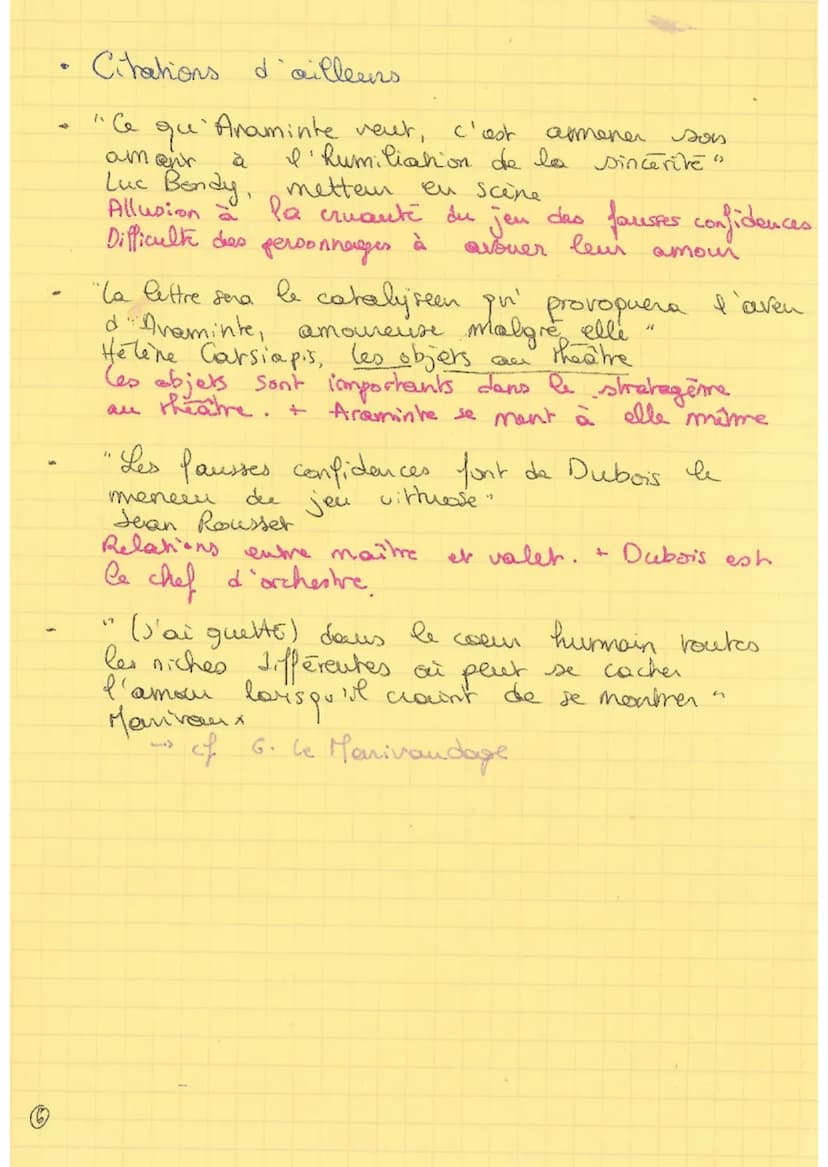 • Citations d'ailleurs
- "Ce qu'Araminte veut, c'est amener son
amant à l'humiliation de la sincérité"
Luc Bondy, metteur en scène
Allusion à la cruauté du jeu des fausses confidences
Difficulté des personnages à avouer leur amour
- "La lettre sera le catalyseur qui provoquera l'aveu
d'Araminte, amoureuse malgré elle"
Hélène Carsiapis, les objets au théâtre
Les objets sont importants dans le stratagème
au théâtre. + Araminte se ment à elle même
- "Les fausses confidences font de Dubois le
meneur de jeu virtuose"
Jean Rousset
Relations entre maître et valet. + Dubois est
le chef d'orchestre.
- "(J'ai guetté) dans le coeur humain toutes
les niches différentes où peut se cacher
l'amour lorsqu'il craint de se montrer"
Marivaux
→ cf 6. Le Marivaudage
6